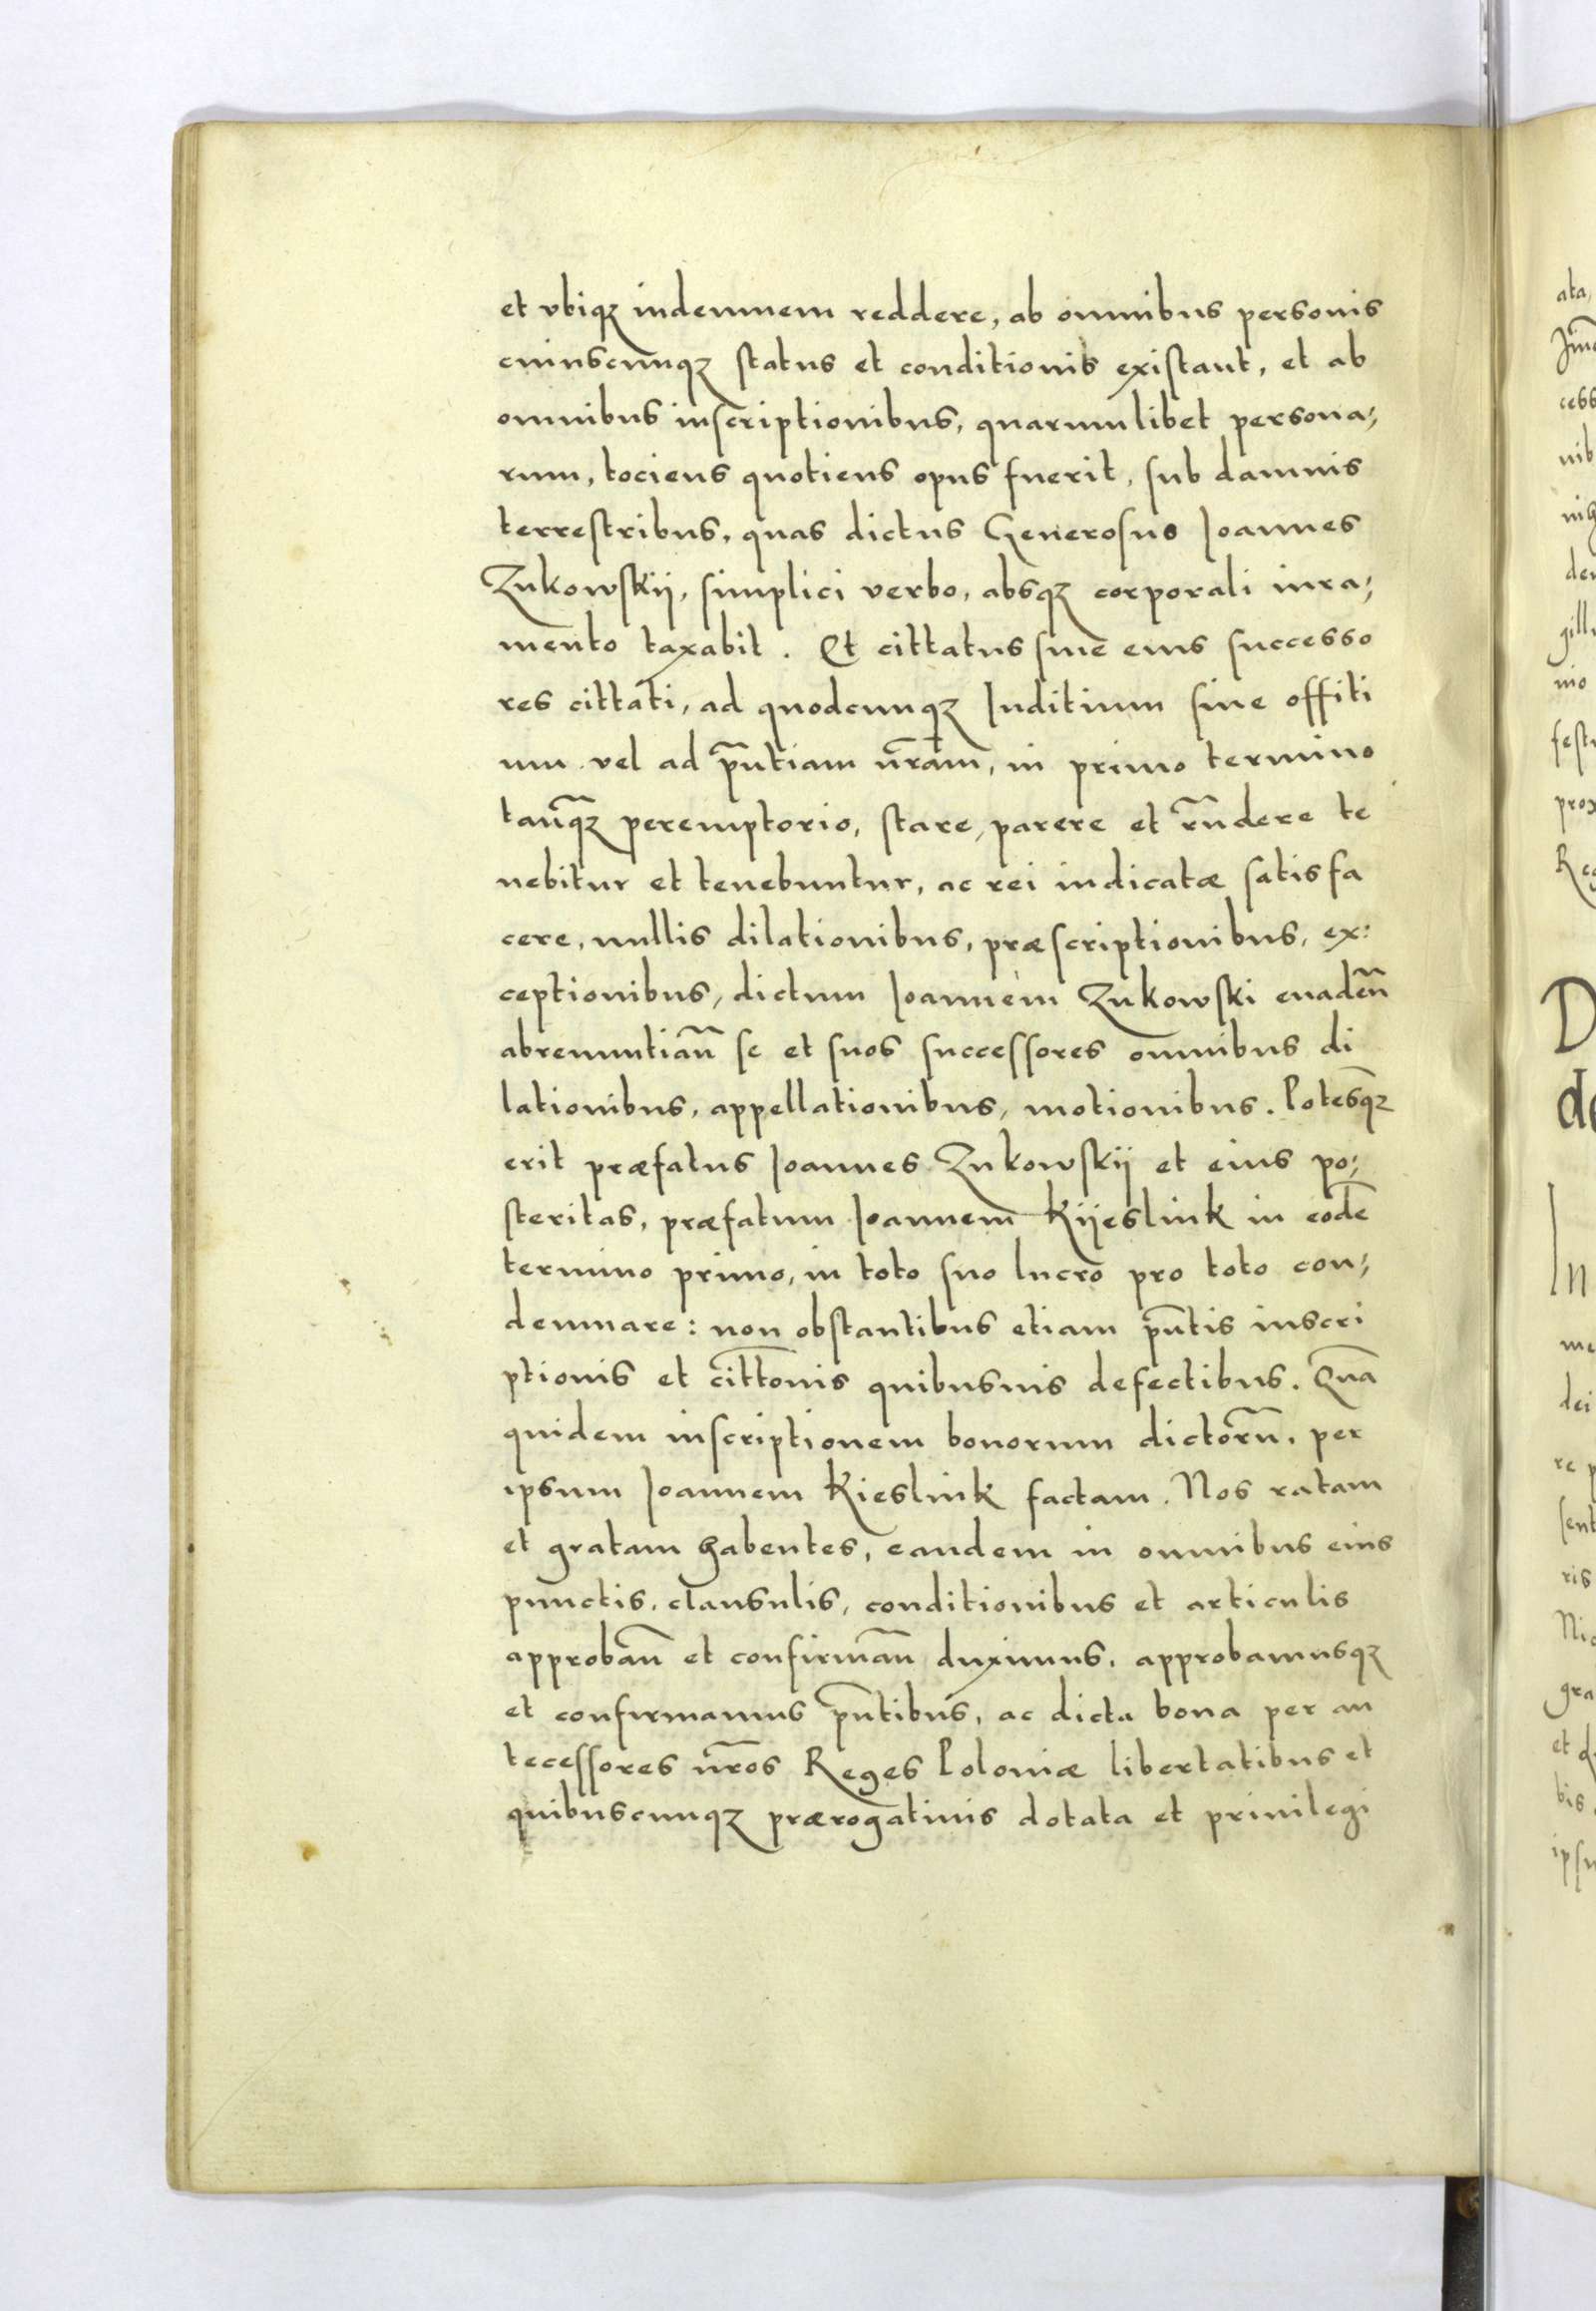 et vbiqꝫ indemnem reddere, ab omnibus personis
cuiuscunqꝫ status et conditionis existant, et ab
omnibus inscriptionibus, quarumlibet persona;
rum, tociens quotiens opus fuerit, sub damnis
terrestribus, quas dictus Generosus Ioannes
Zukowskij, simplici verbo, absqꝫ corporali iura;
mento taxabit. Et cittatus siue eius successo
res cittati, ad quodcunqꝫ Iuditium siue offiti
um vel ad p̄ntiam nr̄am, in primo termino
tanq̄ꝫ peremptorio, stare, parere et rn̄dere te
nebitur et tenebuntur, ac rei iudicatæ satisfa
cere, nullis dilationibus, præscriptionibus, ex:
ceptionibus, dictum Ioannem Zukowski euaden̄
abrenuntian̄ se et suos successores omnibus di
lationibus, appellationibus, motionibus. Potesq̄ꝫ
erit præfatus Ioannes Zukowskij et eius po;
steritas, præfatum Ioannem Kijeslink in eodē
termino primo, in toto suo lucro pro toto con;
demnare: non obstantibus etiam p̄ntis inscri
ptionis et citt̄onis quibusuis defectibus. Quā
quidem inscriptionem bonorum dictor̄u, per
ipsum Ioannem Kieslink factam. Nos ratam
et gratam habentes, eandem in omnibus eius
punctis, clausulis, conditionibus et articulis
approban̄ et confirman̄ duximus, approbamusqꝫ
et confirmamus p̄ntibus, ac dicta bona per an
tecessores nr̄os Reges Poloniæ libertatibus et
quibuscunqꝫ prærogatiuis dotata et priuilegi
ata,
cess
nib
den
gill
nio
fest
prox
Reg
D
de
In
me
dei
re p
sent
ris
Nic
gra
et q
bis
ipsu